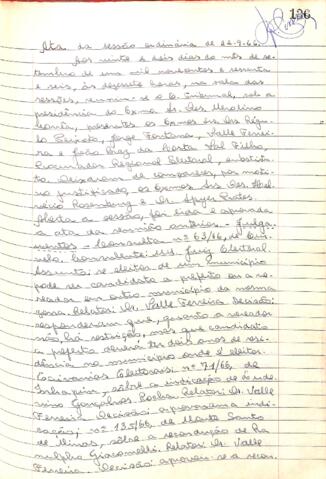 136
Ata da sessão ordinária de 22-9-66.
Aos vinte e dois dias do mês de se-
tembro de um mil novecentos e sessenta
e seis, às dezoito horas, na sala das
sessões, reuniu-se o E. Tribunal, sob a
presidência do Exmo. Sr. Des.
presentes os Exmos. Srs. Des.
Jorge Fontana, Valle Ferrei-
ra e João Braz da Costa Val Filho,
Procurador Regional Eleitoral, substitu-
to. Deixaram de comparecer, por moti-
vo justificado, os Exmos. Srs. Des.
e Dr.
Aberta a sessão, foi lida e aprovada
a ata da reunião anterior. Julga-
mentos - Consulta nº 63/66, de
Consulente: Juiz Eleitoral.
Assunto: se eleitor de um município
pode ser candidato a prefeito ou a ve-
reador em outro município da mesma
zona. Relator: Dr. Valle Ferreira. Decisão:
responderam que, quanto a vereador
não há restrição, mas que candidato
a prefeito deverá ter dois anos de resi-
dência no município onde é eleitor.
Escrivanias Eleitorais: nº 71/66, de
sôbre a indicação de
Gonçalves Rocha. Relator: Dr. Valle
Ferreira. Decisão: aprovaram a indi-
cação; nº 135/66, de Monte Santo
de Minas, sôbre a recondução de Ra-
nulpho Giacomelli. Relator: Dr. Valle
Ferreira. Decisão: aprovou-se a recon-